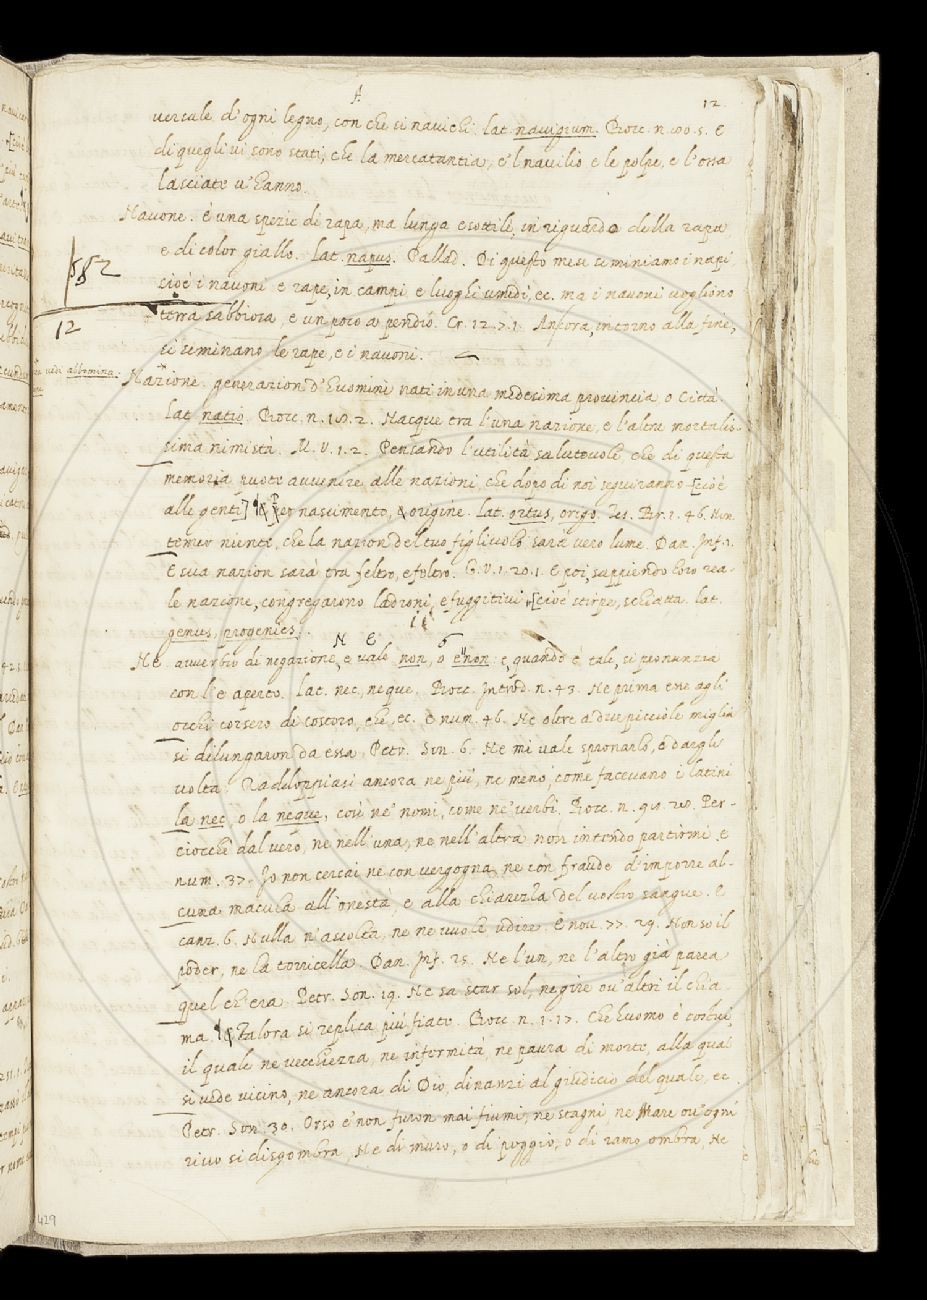 A
12
uersale d'ogni legno, con che si nauichi. lat. nauigium. Bocc. n.
di quegli ui sono stati, che la mercatantia, e'l nauilio e le polpe, e l'ossa
lasciate u'hanno.
Nauone. è una spezie di rapa, ma lunga e sottile, in riguardo della rapa
e di color giallo. Lat. napus. Pallad. Di questo mese seminiamo i napi
cioè i nauoni e rape, in campi e luoghi umidi, ec. ma i nauoni uogliono
terra sabbiosa, e un poco a pendio. Cr. 12.7.1. Ancora, intorno alla fine,
si seminano le rape, e i nauoni.
582
12
uedi abbomina:
Nazione. generazion d'huomini nati in una medesima prouincia, o Città.
lat. natio. Bocc. n. 18. 2. Nacque tra l'una nazione, e l'altra mortalis-
sima nimistà. M.V. 1. 2. Pensando l'utilità saluteuole che di questa
memoria puote auuenire alle nazioni, che dopo di noi seguiranno [cioè
alle genti] per nascimento, origine. Lat. ortus, origo. Tes. Br. 1. 46. Non
temer niente, che la nazion del tuo figliuolo sarà uero lume. Dan. Inf. 1.
E sua nazion sarà tra feltro, e feltro. G.V. 1. 20. 1. E poi, sappiendo loro rea-
le nazione, congregarono ladroni, e fuggitiui [cioè stirpe, schiatta. lat.
genus, progenies.
Ne. auuerbio di negazione, e uale non, o e non: e, quando è tale, si pronunzia
con l'e aperto. Lat. nec, neque. Bocc. Introd. n. 43. Ne prima ene agli
occhi corsero di costoro, che, ec. E num. 46. Ne oltre a due picciole miglia
si dilungaron da essa. Petr. Son. 6. Ne mi uale spronarlo, o dargli
uolta. Raddoppiasi ancora ne più, ne meno, come faceuano i latini
la nec, o la neque, così ne' nomi, come ne' uerbi. Bocc. n. 98. 20. Per-
ciocchè dal uero, ne nell'una, ne nell'altra non intendo partirmi. E
num. 37. Io non cercai ne con uergogna, ne con fraude d'imporre al-
cuna macula all'onestà, e alla chiarezza del uostro sangue. E
canz. 6. Nulla n'ascolta, ne ne uuole udire. E nou. 77. 29. Non so il
poder, ne la torricella. Dan. Inf. 25. Ne l'un, ne l'altro già parea
quel ch'era. Petr. Son. 19. Ne sa star sol, ne gire ou'altri il chia-
ma. Talora si replica più fiate. Bocc. n. 1. 17. Che huomo è costui,
il quale ne uecchiezza, ne infermità, ne paura di morte, alla qual
si uede uicino, ne ancora di Dio, dinanzi al giudicio del quale, ec.
Petr. Son. 30. Orso e' non furon mai fiumi, ne stagni, ne Mare ou'ogni
riuo si disgombra, Ne di muro, o di poggio, o di ramo ombra, Ne
429